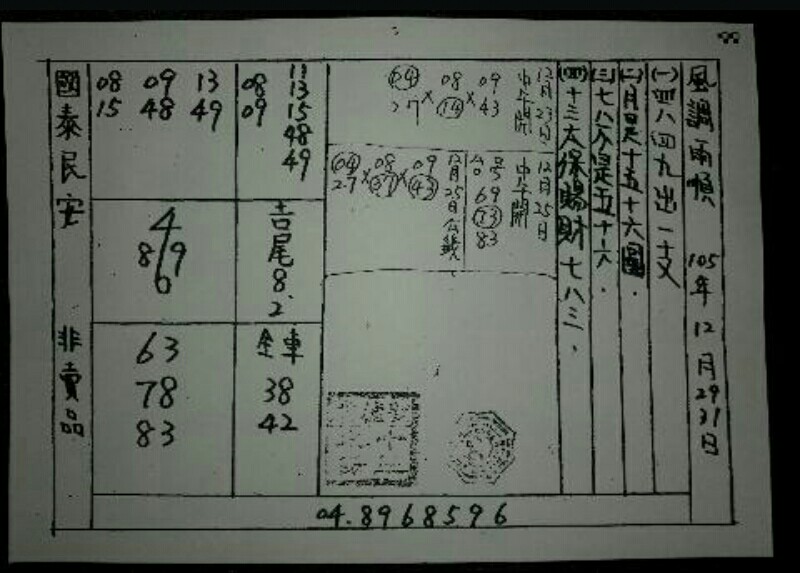 風調雨順 105年12月29 31日
(一)四八四九出一支
(二)月異十五十六圓.
(三)七八不是五十六.
(四)十三太保賜財七八三.
12月23日
中午開
09 43
08 (14)
×
(04) 27
12月25日
中午開
台号
69
(73)
83
12月25日公錢
09 (43)
×
08 (37)
×
(04) 27
11
08 13
09 15
48
49
08 09 13
15 48 49
吉尾 8 2
4
8 9
6
全車
38
42
63
78
83
國泰民安 非賣品
04.8968596